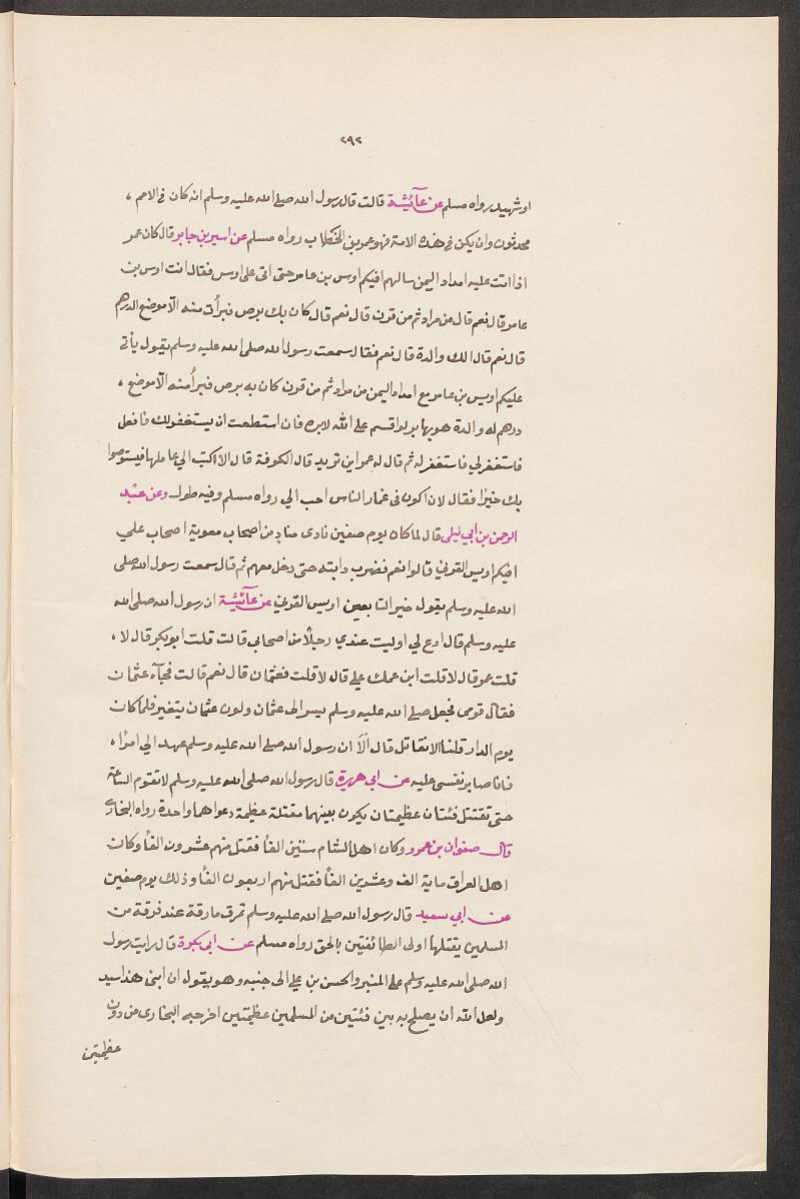 ٢٩٢
او شهيد رواه مسلم عن عآئشة قالت قال رسول الله صلے الله عليه وسلم انه كان في الامم ،
محدثون وان يكن في هذه الامة فهو عمر بن الخطاب رواه مسلم عن اسير بن جابر قال كان عمر
اذا اتت عليه امداد اليمن سالهم افيكم اوس بن عامر حتى اتى على اوس فقال انت اوس بن
عامر قال نعم قال من مراد ثم من قرن قال نعم قال كان بك برص فبرأت منه الا موضع الدرهم
قال نعم قال الك والدة قال نعم فقال سمعت رسول الله صلى الله عليه وسلم يقول يأتي
عليكم اويس بن عامر مع امداد اليمن من مراد ثم من قرن كان به برص فبرأ منه الا موضع ،
درهم له والدة هو بها بر لو اقسم على الله لابره فان استطعت ان يستغفر لك فافعل
فاستغفر لي فاستغفر له ثم قال له عمر اين تريد قال الكوفة قال الا اكتب الي عاملها فيستوصوا
بك خيرًا فقال لان اكون في غمار الناس احب الي رواه مسلم وفيه طول وعن عبد
الرحمن بن ابي ليلى قال لما كان يوم صفين نادى مناد من اصحاب معوية اصحاب علي
افيكم اويس القرني قالوا نعم فضرب دابته حتى دخل معهم ثم قال سمعت رسول الله صلى
الله عليه وسلم يقول خير التابعين اويس القرني عن عآئشة ان رسول الله صلى الله
عليه وسلم قال ادع لي اوليت عندي رجلًا من اصحابي قالت قلت ابو بكر قال لا ،
قلت عمر قال لا قلت ابن عمك علي قال لا قلت فعثمان قال نعم قالت فجآء عثمان
فقال قومى فجعل صلے الله عليه وسلم يسر الى عثمان ولون عثمان يتغير فلما كان
يوم الدار قلنا الا نقاتل قال الا ان رسول الله صلے الله عليه وسلم عهد الي امرًا ،
فانا صابر نفسي عليه عن ابى هريرة قال رسول الله صلى الله عليه وسلم لا تقوم الساعة
حتى تقتتل فئتان عظيمتان يكون بينهما مقتلة عظيمة دعواهما واحدة رواه البخارے
قال صفوان بن عمرو وكان اهل الشام ستين الفًا فقتل منهم عشرون الفًا وكان
اهل العراق ماية الف وعشرين الفًا فقتل منهم اربعون الفًا وذلك يوم صفين
عن ابي سعيد قال رسول الله صلے الله عليه وسلم تمرق مارقة عند فرقة من
المسلمين يقتلها اولى الطائفتين بالحق رواه مسلم عن ابى بكرة قال رايت رسول
الله صلى الله عليه وسلم على المنبر والحسن بن علي الى جنبه وهو يقول ان ابنى هذا سيد
ولعل الله ان يصلح به بين فئتين من المسلمين عظيمتين اخرجه البخارى من دون
عظيمتين